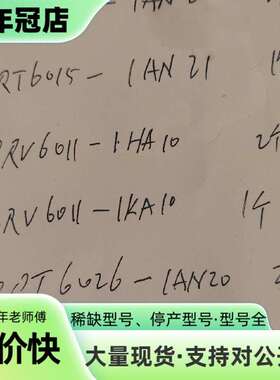 年冠店
RT6015-1AN21
RV6011-1HA10 2个
RV6011-1KA10 1个
T6026-1AN20
年老师傅
价快
稀缺型号、停产型号·型号全
大量现货·支持对公